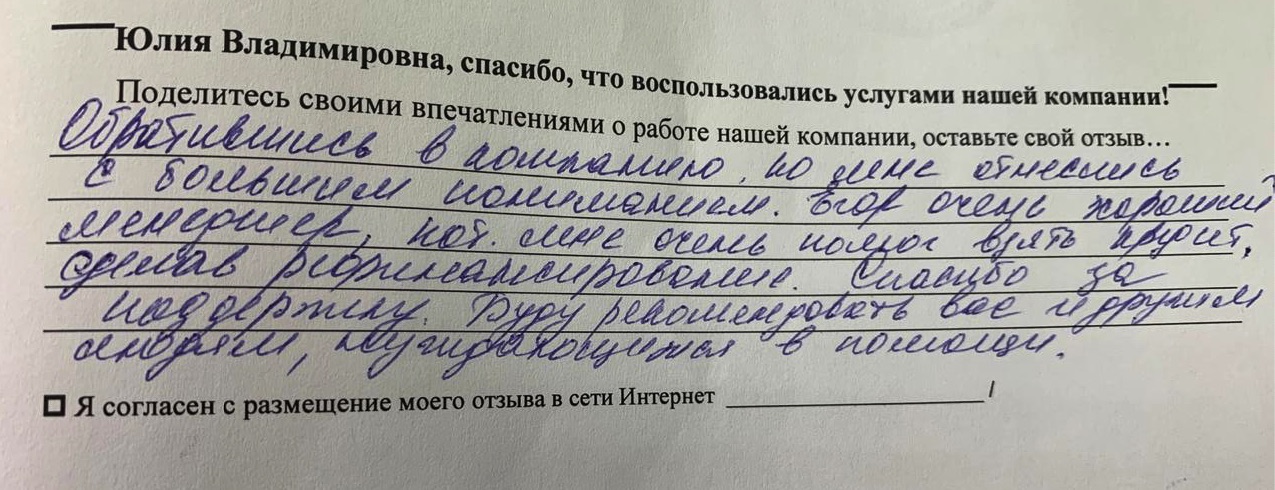 Юлия Владимировна, спасибо, что воспользовались услугами нашей компании!
Поделитесь своими впечатлениями о работе нашей компании, оставьте свой отзыв…
Обратившись в компанию, ко мне отнеслись
с большим пониманием. Егор очень хороший
менеджер, кот. мне очень помог взять кредит,
сделав рефинансирование. Спасибо за
поддержку. Буду рекомендовать вас и другим
людям, нуждающимся в помощи.
Я согласен с размещение моего отзыва в сети Интернет ____________________/